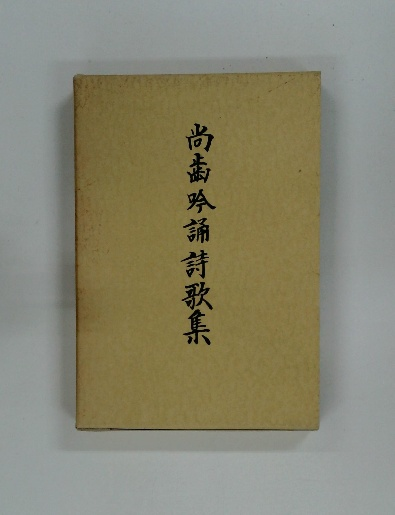 尚歯吟誦詩歌集